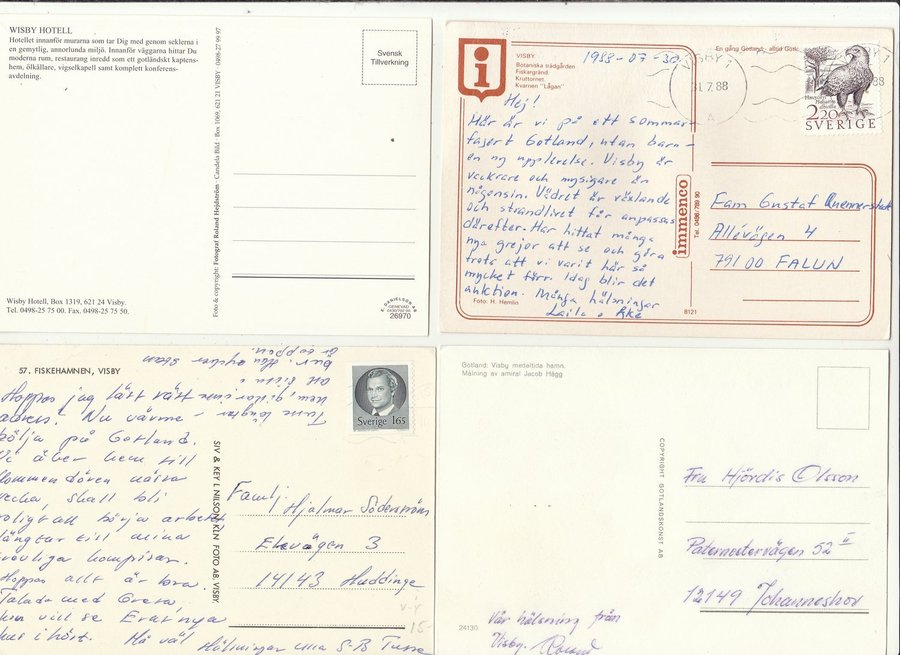 WISBY HOTELL
Hotellet innanför murarna som tar Dig med genom seklerna i
en gemytlig, annorlunda miljö. Innanför väggarna hittar Du
moderna rum, restaurang inredd som ett gotländskt kaptens-
hem, ölkällare, vigselkapell samt komplett konferens-
avdelning.
Svensk
Tillverkning
Wisby Hotell, Box 1319, 621 24 Visby.
Tel. 0498-25 75 00. Fax. 0498-25 75 50.
Foto & copyright: Fotograf Roland Hejdström Candela Bild · Box 1069, 621 21 VISBY · 0498-27 99 97
DANIELSON
GENEVAD
26970
i
VISBY
Botaniska trädgården
Fiskargränd
Kruttornet
Kvarnen "Lågan"
1988-07-30
En gång Gotland - alltid Gotl
31.7.88
A
88
Havsörn
Haliaetus
albicilla
2.20
SVERIGE
Hej!
Här är vi på ett sommar-
fagert Gotland, utan barn -
en ny upplevelse. Visby är
vackrare och mysigare än
någonsin. Vädret är växlande
och strandlivet får anpassas
därefter. Har hittat många
nya grejor att se och göra
trots att vi varit här så
mycket förr. Idag blir det
auktion. Många hälsningar
Laila o Åke
Foto: H. Hemlin
immenco
Tel. 0498/789 90
8121
Fam Gustaf
Allévägen 4
791 00 FALUN
57. FISKEHAMNEN, VISBY
Sverige 165
Hoppas jag lärt rätt
adress! Nu värme-
bölja på Gotland.
Vi åker hem till
Blommendören nästa
vecka, skall bli
roligt att börja arbeta
längtar till mina
trevliga kompisar.
Hoppas allt är bra.
Talade med Greta,
hon vill se Erat nya
hus i höst. Må väl
Hälsningar S-B Tusse
SIV & KEY L NILSON KLN FOTO AB, VISBY.
Familj
Hjalmar Söderström
Ekevägen 3
14143 Huddinge
15-
Gotland: Visby medeltida hamn.
Målning av amiral Jacob Hägg
COPYRIGHT GOTLANDSKONST AB
Fru Hjördis Olsson
Paternostervägen 52 II
12149 Johanneshov
24130
Vår hälsning från
Visby. Roland